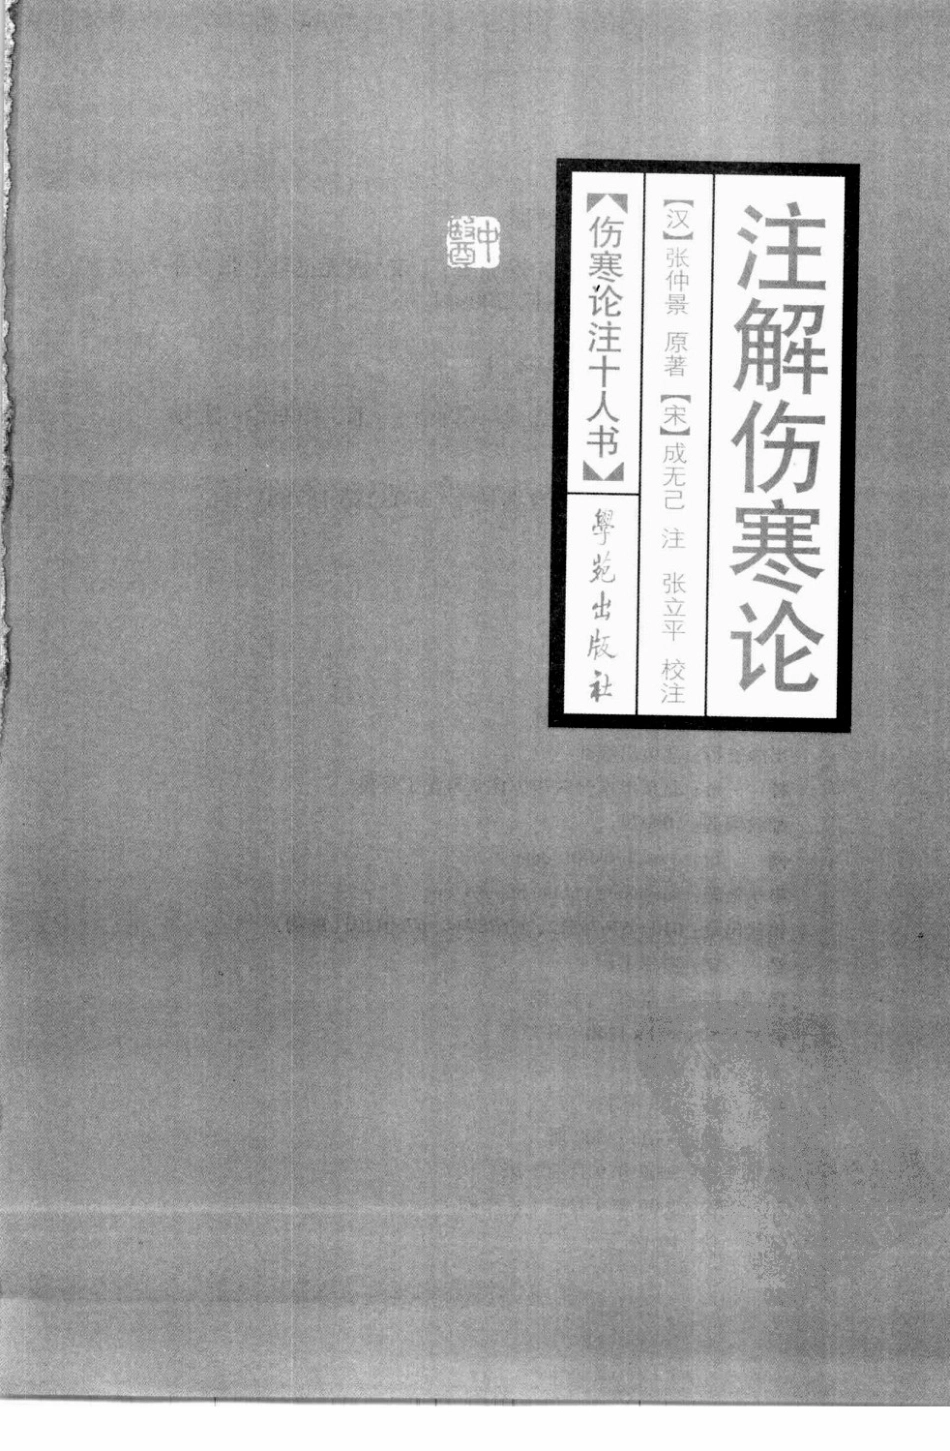 注解伤寒论
【汉】张仲景 原著【宋】成无己 注 张立平 校注
【伤寒论注十人书】
學苑出版社
中醫